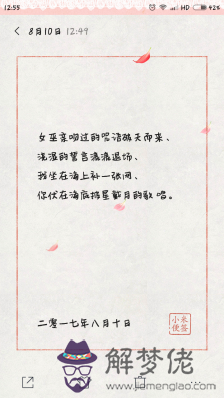 12:55
HD
8月10日 12:49
女巫亲吻过的咒语
而来、
的誓言
退场、
我坐在海上补一张网、
你伏在海底
戴月的歌唱。
二零一七年八月十日
小米便签
解梦佬
www.jiemenglao.com